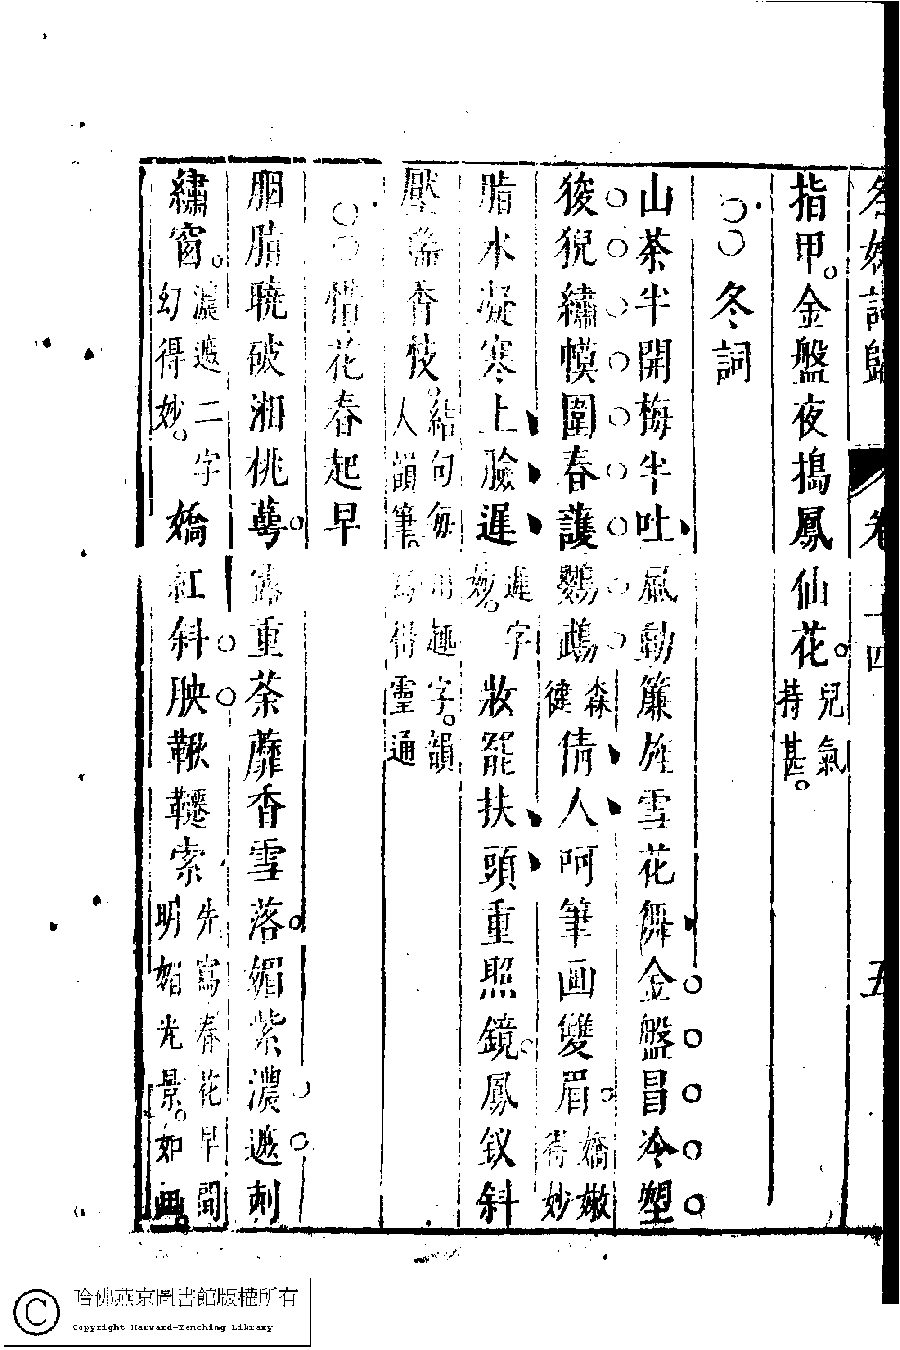 名媛詩歸 卷二十四 五
指甲。金盤夜搗鳳仙花。兒氣持甚。
○○冬詞
山茶半開梅半吐風動簾旌雪花舞金盤冒冷塑
狻猊繡幙圍春護鸚鵡森健倩人呵筆画雙眉。嬌嫩得妙
脂水凝寒上臉遲遲字妙。妝罷扶頭重照鏡。鳳釵斜
壓瑞香枝。結句每用趣字。韻人韻筆。寫得靈通
○○惜花春起早
胭脂曉破湘桃萼。露重荼蘼香雪落。媚紫濃遮刺
繡窗。濃遮二字幻得妙。嬌紅斜映鞦韆索先寫春花早開明媚光景。如畫。
哈佛燕京圖書館版權所有
Copyright Harvard-Yenching Library